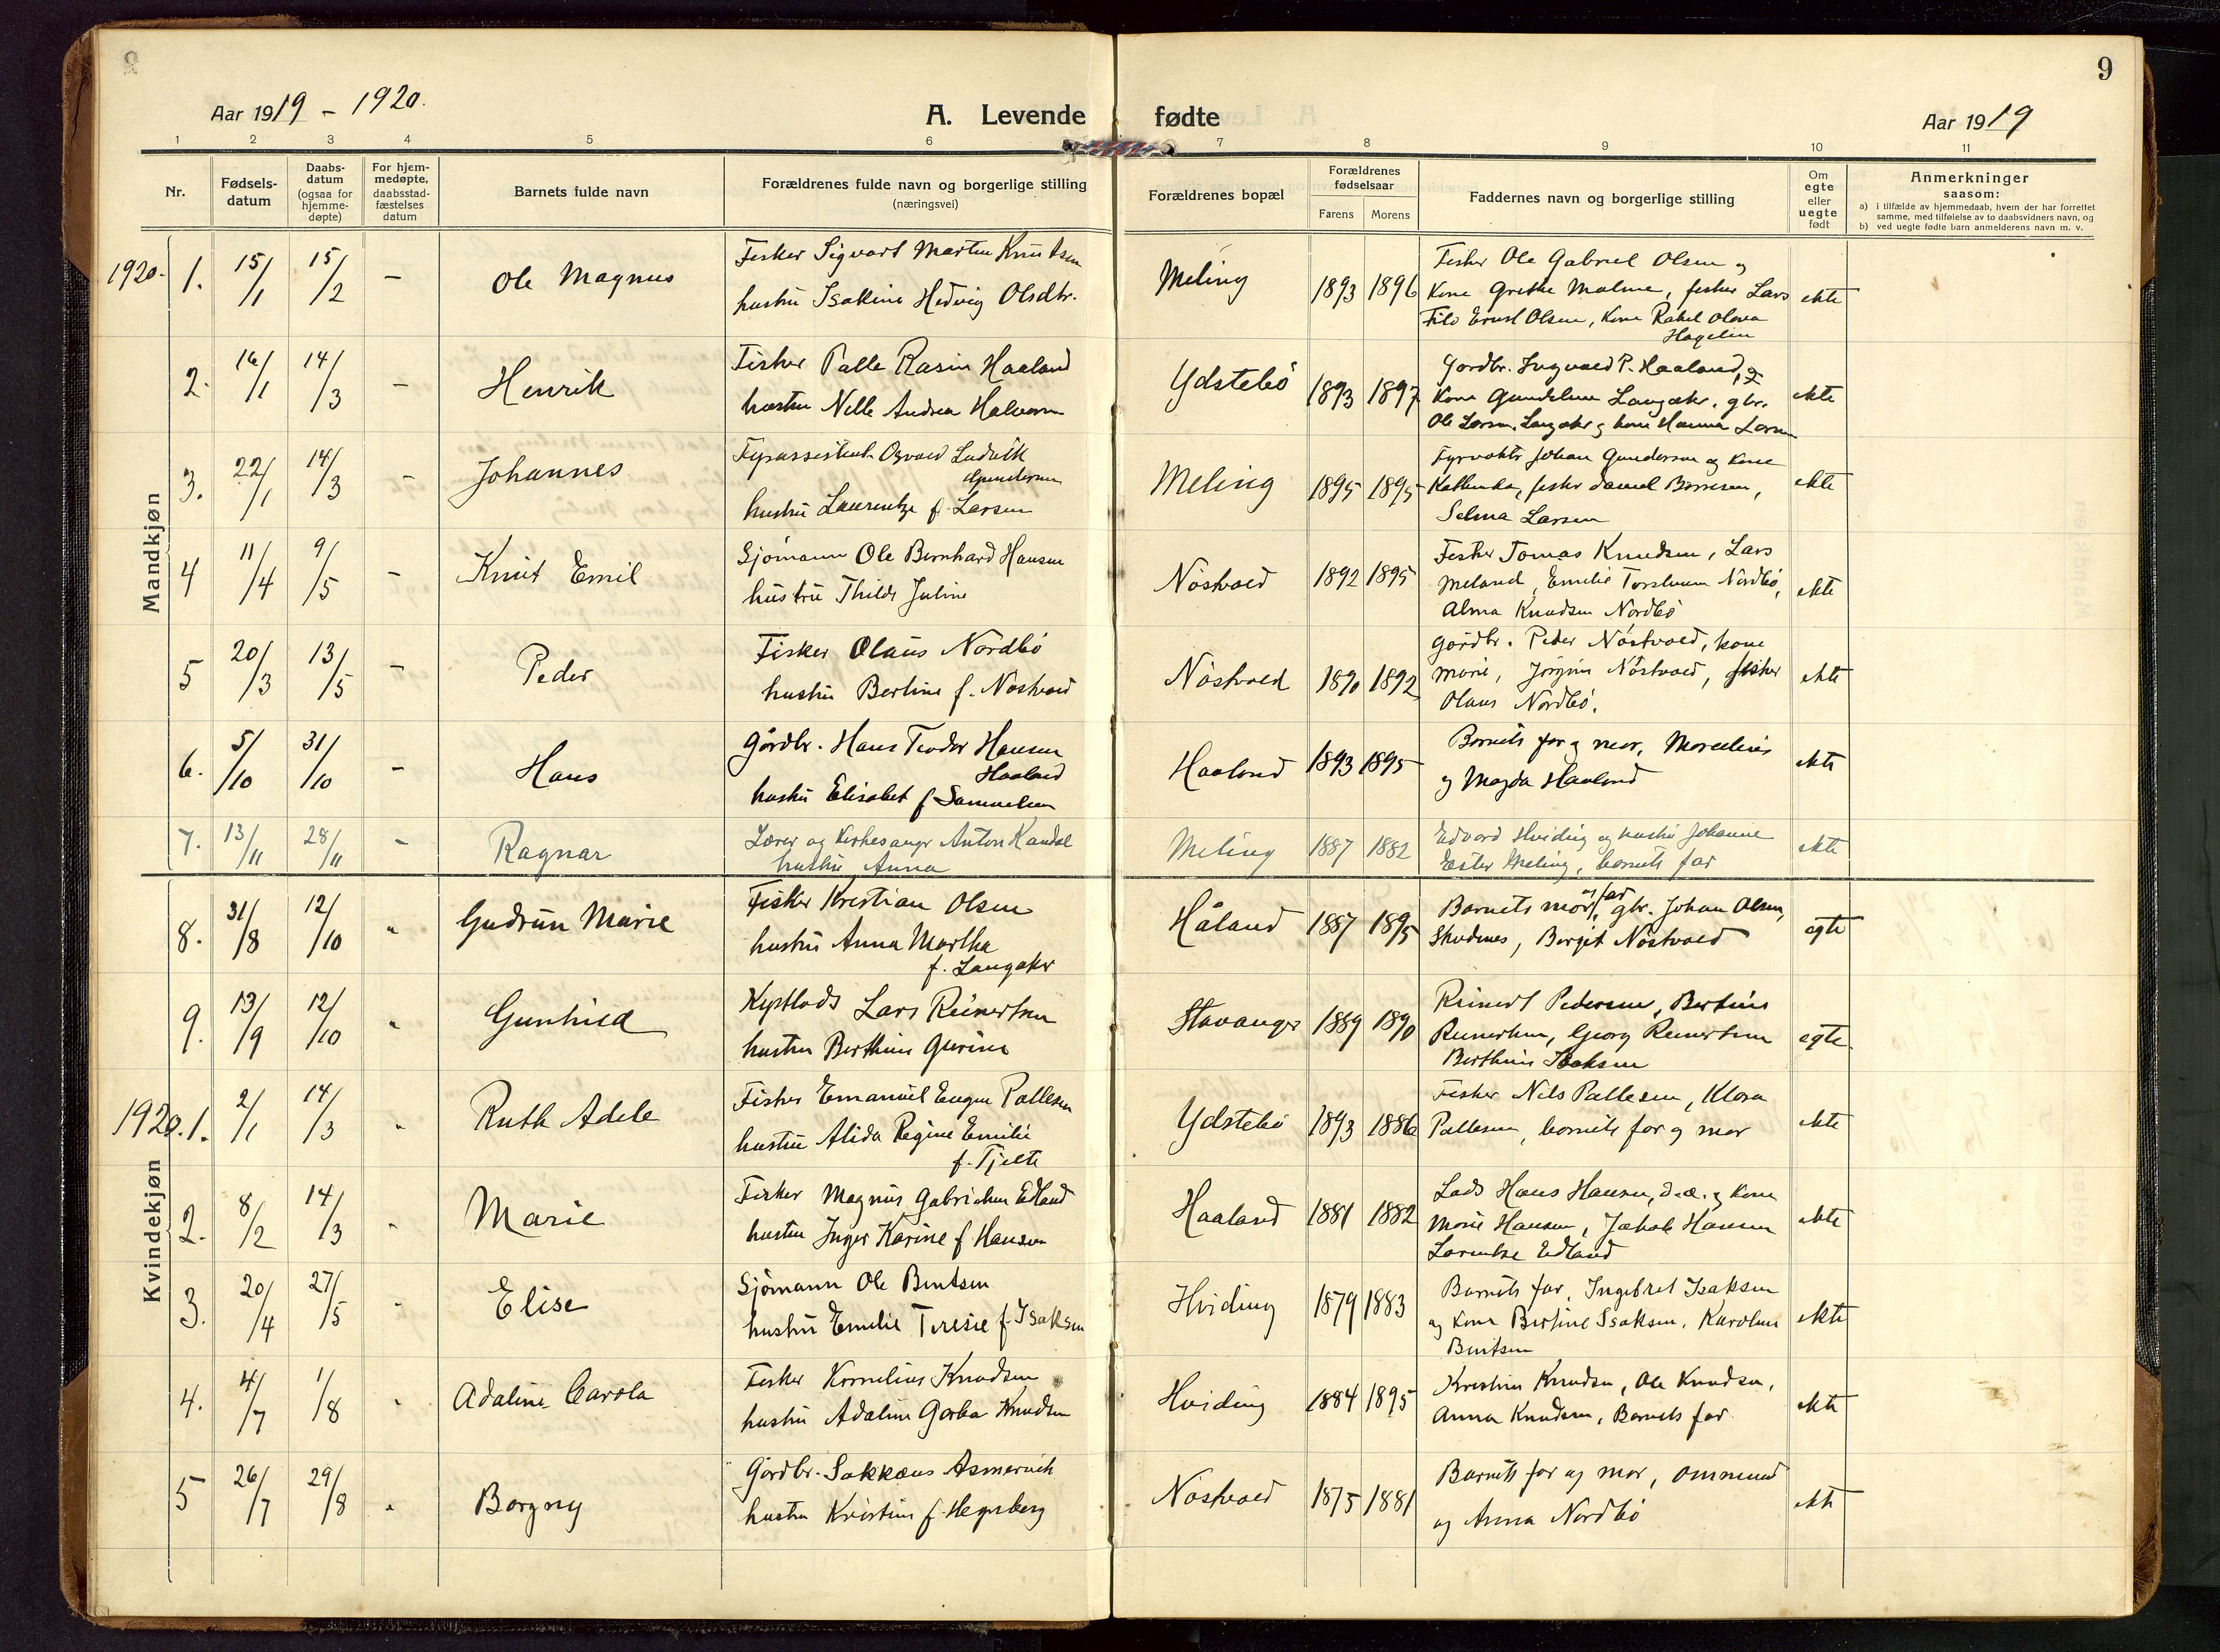 9
Aar 1919 - 1920.
A. Levende fødte
Aar 1919
1 2 3 4 5 6 7 8 9 10 11
Nr.
Fødsels-
datum
Daabs-
datum
(ogsaa for
hjemme-
døpte)
For hjem-
medøpte,
daabsstad-
fæstelses
datum
Barnets fulde navn
Forældrenes fulde navn og borgerlige stilling
(næringsvei)
Forældrenes bopæl
Forældrenes
fødselsaar
Farens Morens
Faddernes navn og borgerlige stilling
Om
egte
eller
uegte
født
Anmerkninger
saasom:
a) i tilfælde av hjemmedaab, hvem der har forrettet
samme, med tilføielse av to daabsvidners navn, og
b) ved uegte fødte barn anmelderens navn m. v.
Mandkjøn
1920. 1. 15/1 15/2 - Ole Magnus
Fisker Sigvart Martin Knutsen
hustru Isakine Hedvig Olsdtr.
Meling 1893 1896
Fisker Ole Gabriel Olsen og
Kone Grethe Malme, fisker Lars
Filo Ernst Olsen, Kone Rakel Olava
Hagelin
ekte
2. 16/1 14/3 - Henrik
Fisker Palle Rasin Haaland
hustru Nelle Andrea Halvorsen
Ydstebö 1893 1897
Gardbr. Ingvald P. Haaland, og
Kone Gundeline Langaker, gbr.
Ole Larsen Langaker og kone Hanna Larsen
ekte
3. 22/1 14/3 - Johannes
Fyrassistent Osvald Ludvik
Gundersen
hustru Laurentze f. Larsen
Meling 1895 1895
Fyrvokter Johan Gundersen og Kone
Kathinka, fisker Daniel Børresen,
Selma Larsen
ekte
4 11/4 9/5 - Knut Emil
Sjömann Ole Bernhard Hansen
hustru Thilde Juline
Nöstvold 1892 1895
Fisker Tomas Knudsen, Lars
Meland, Emilie Torsteinsen Nordbö,
Alma Knudsen Nordbö
ekte
5 20/3 13/5 - Peder
Fisker Olaus Nordbö
hustru Bertine f. Nostvold
Nöstvold 1890 1892
Gårdbr. Peder Nöstvold, kone
Marie, Jörgine Nöstvold, fisker
Olaus Nordbö.
ekte
6. 5/10 31/10 - Hans
Gårdbr. Hans Teodor Hansen
Haaland
hustru Elisabet f Samuelsen
Haaland 1893 1895
Barnets far og mor, Marselius
og Magda Haaland
ekte
7. 13/11 28/11 - Ragnar
Lærer og kirkesanger Anton Kandal
hustru Anna
Meling 1887 1882
Edvard Hviding og hustru Johanne
Ester Meling, barnets far
ekte
Kvindekjøn
8. 31/8 12/10 " Gudrun Marie
Fisker Kristian Olsen
hustru Anna Martha
f. Langaker
Håland 1887 1895
Barnets mor og far, gbr. Johan Olsen,
Skudenes, Bergit Nöstvold
egte
9. 13/9 12/10 " Gunhild
Kystlods Lars Reinertsen
hustru Berthine Gurine
Stavanger 1889 1890
Reinert Pedersen, Bertine
Reinertsen, Georg Reinertsen
Berthine Isaksen
egte.
1920. 1. 2/1 14/3 " Ruth Adele
Fisker Emanuel Eugen Pallesen
hustru Alida Regine Emilie
f. Tjelte
Ydstebö 1893 1886
Fisker Nils Pallesen, Klara
Pallesen, barnets far og mor
ekte
2. 8/2 14/3 " Marie
Fisker Magnus Gabrielsen Edland
hustru Inger Karine f Hansen
Haaland 1881 1882
Lods Hans Hansen, d.æ. og kone
Marie Hansen, Jakob Hansen
Larentse Edland
ekte
3. 20/4 27/5 " Elise
Sjömann Ole Bentsen
hustru Emilie Teresie f. Isaksen
Hviding 1879 1883
Barnets far, Ingebret Isaksen
og kone Bertine Isaksen, Karoline
Bentsen
ekte
4. 4/7 1/8 " Adaline Carola
Fisker Kornelius Knudsen
hustru Adaline Garba Knudsen
Hviding 1884 1895
Kristine Knudsen, Ole Knudsen,
Anna Knudsen, Barnets far
ekte
5 26/7 29/8 " Borgny
Gårdbr. Sakkæus Asmervik
hustru Kristine f. Hegreberg
Nöstvold 1875 1881
Barnets far og mor, Ommund
og Anna Nordbö
ekte